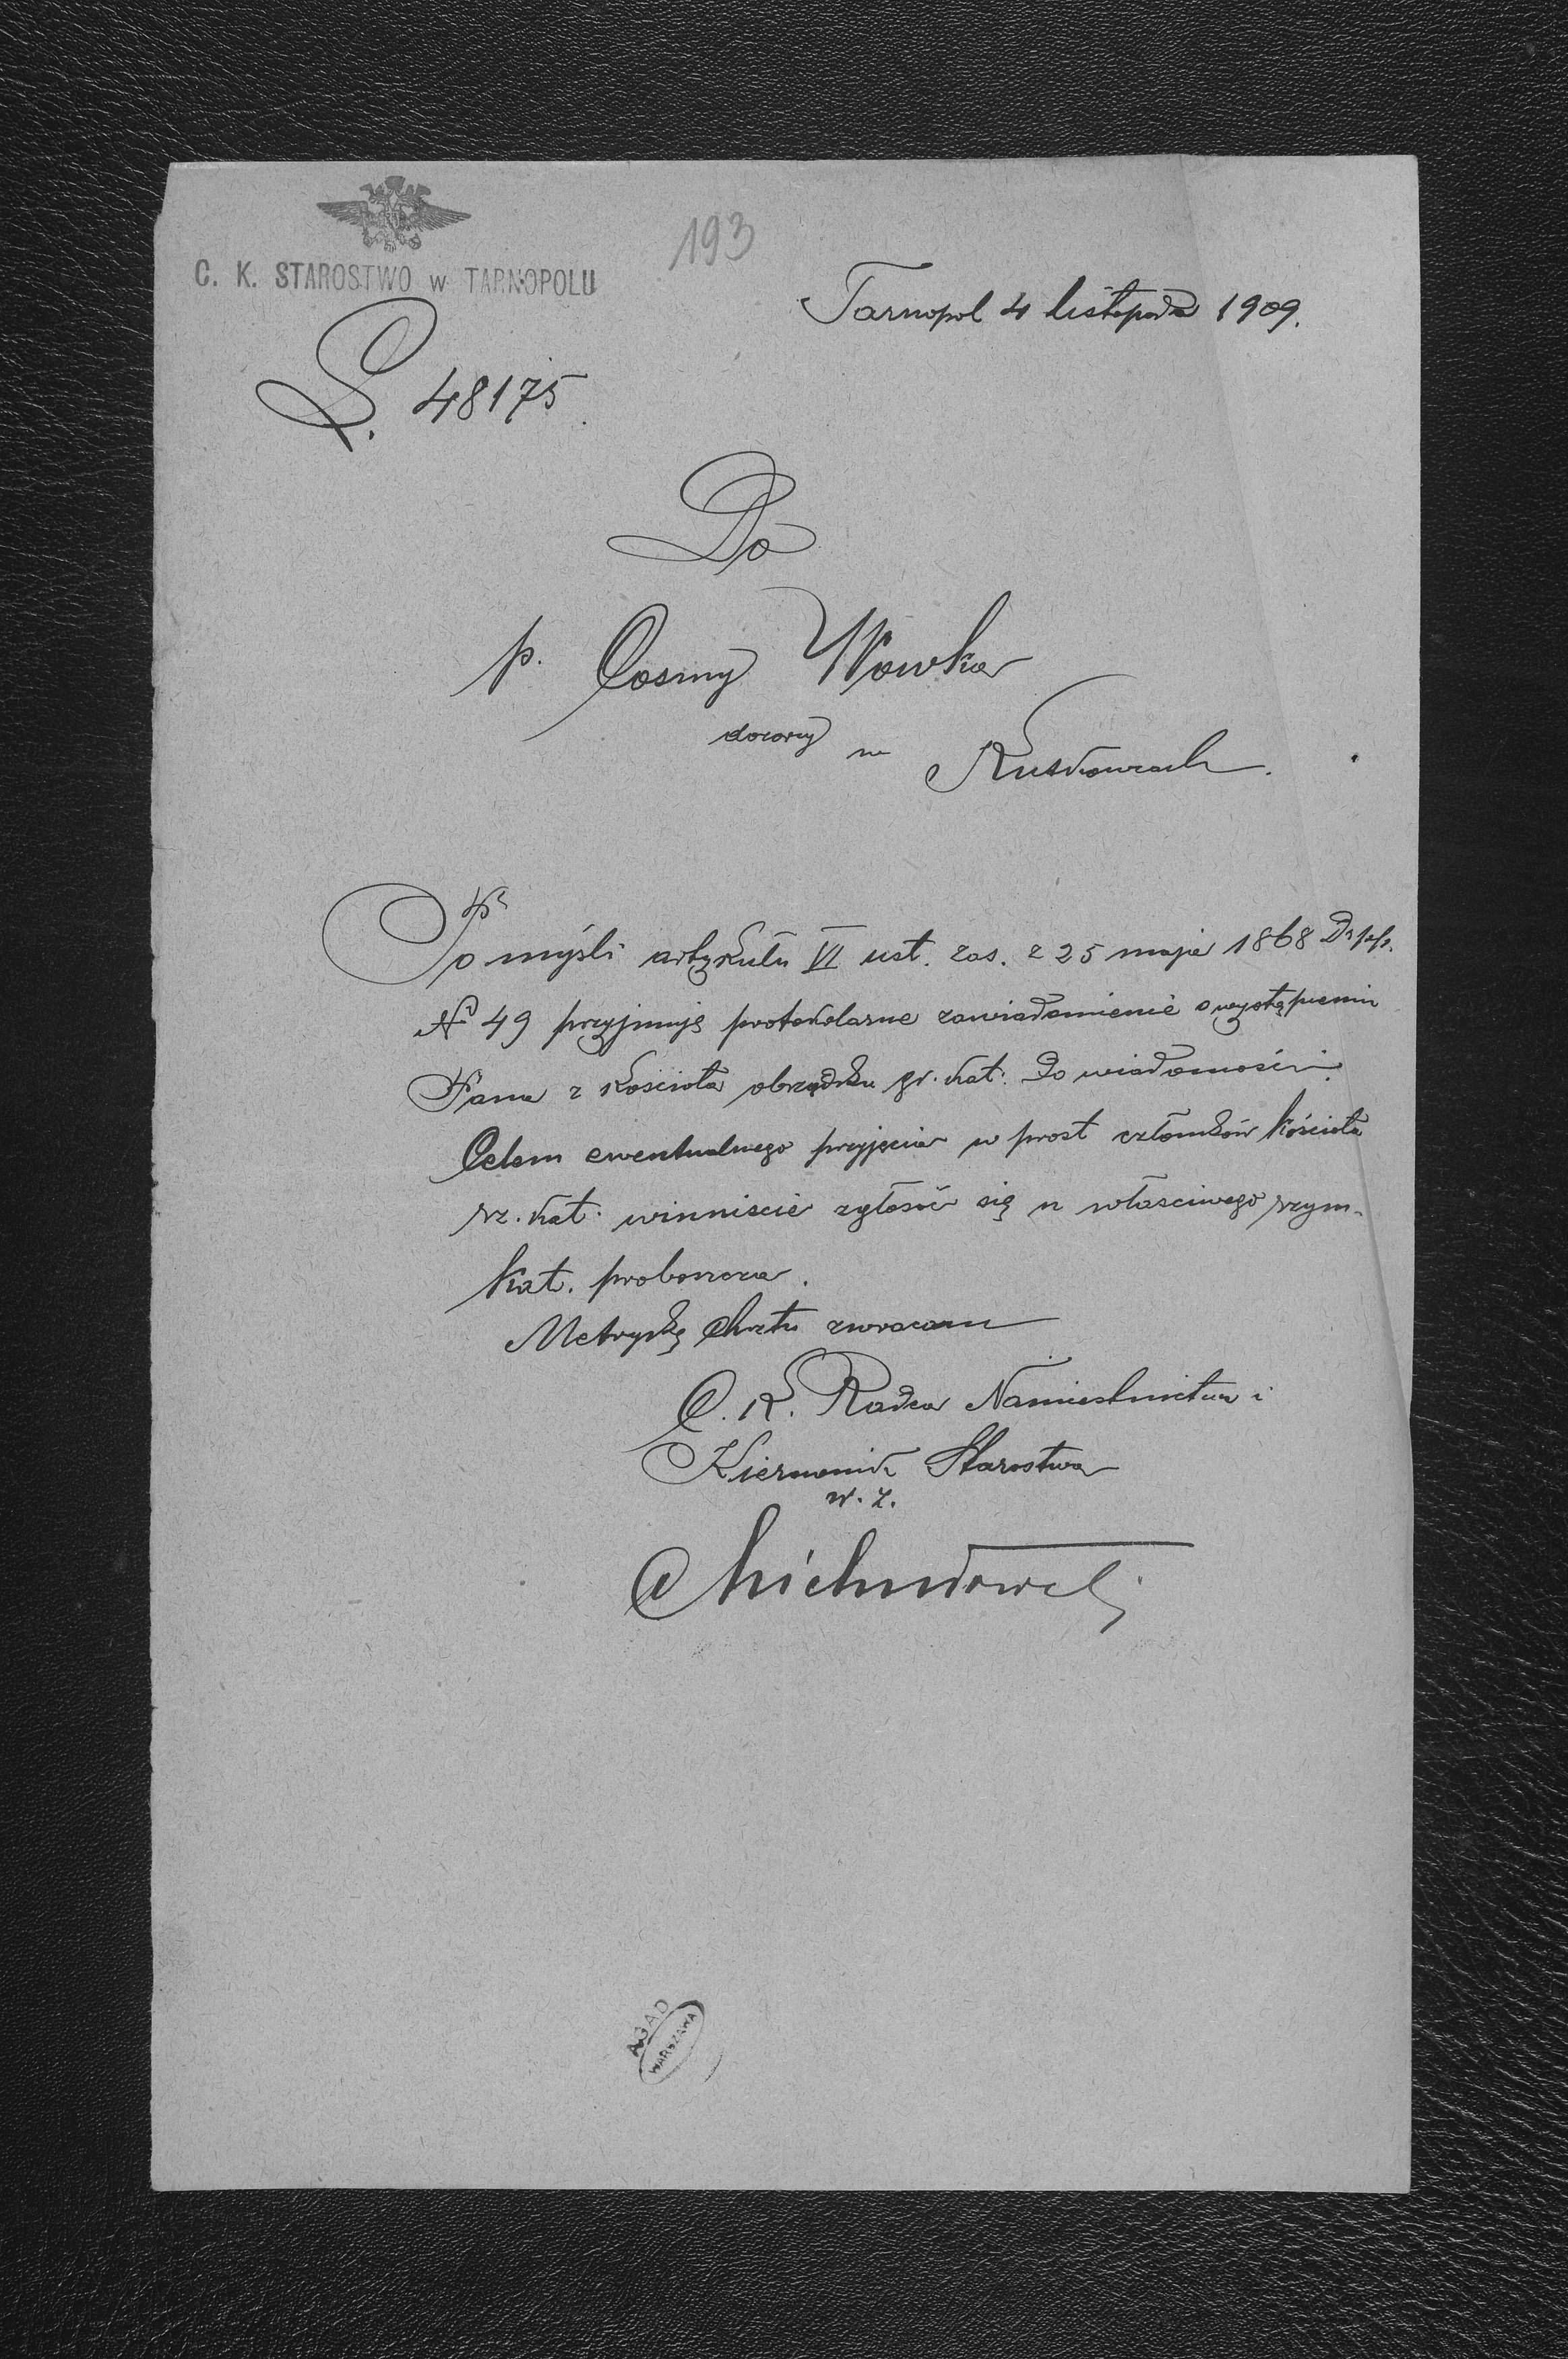 C. K. STAROSTWO w TARNOPOLU
193
Tarnopol 4 listopada 1909.
L. 48175.
Do
p. Cosmy Wowka
w
Po myśli artykułu VI ust. zas. z 25 maja 1868 Dz.p.p.
№ 49 przyjmuję protokolarne zawiadomienie o wystąpieniu
Pana z kościoła obrządku gr. kat. do wiadomości.
Celem ewentualnego przyjęcia w członków kościoła
rz. kat. winniście zgłosić się u właściwego rzym.
kat. proboszcza.
Metrykę chrztu zwracam
C. K. Radca Namiestnictwa i
Kierownik Starostwa
w. z.
AGAD
WARSZAWA